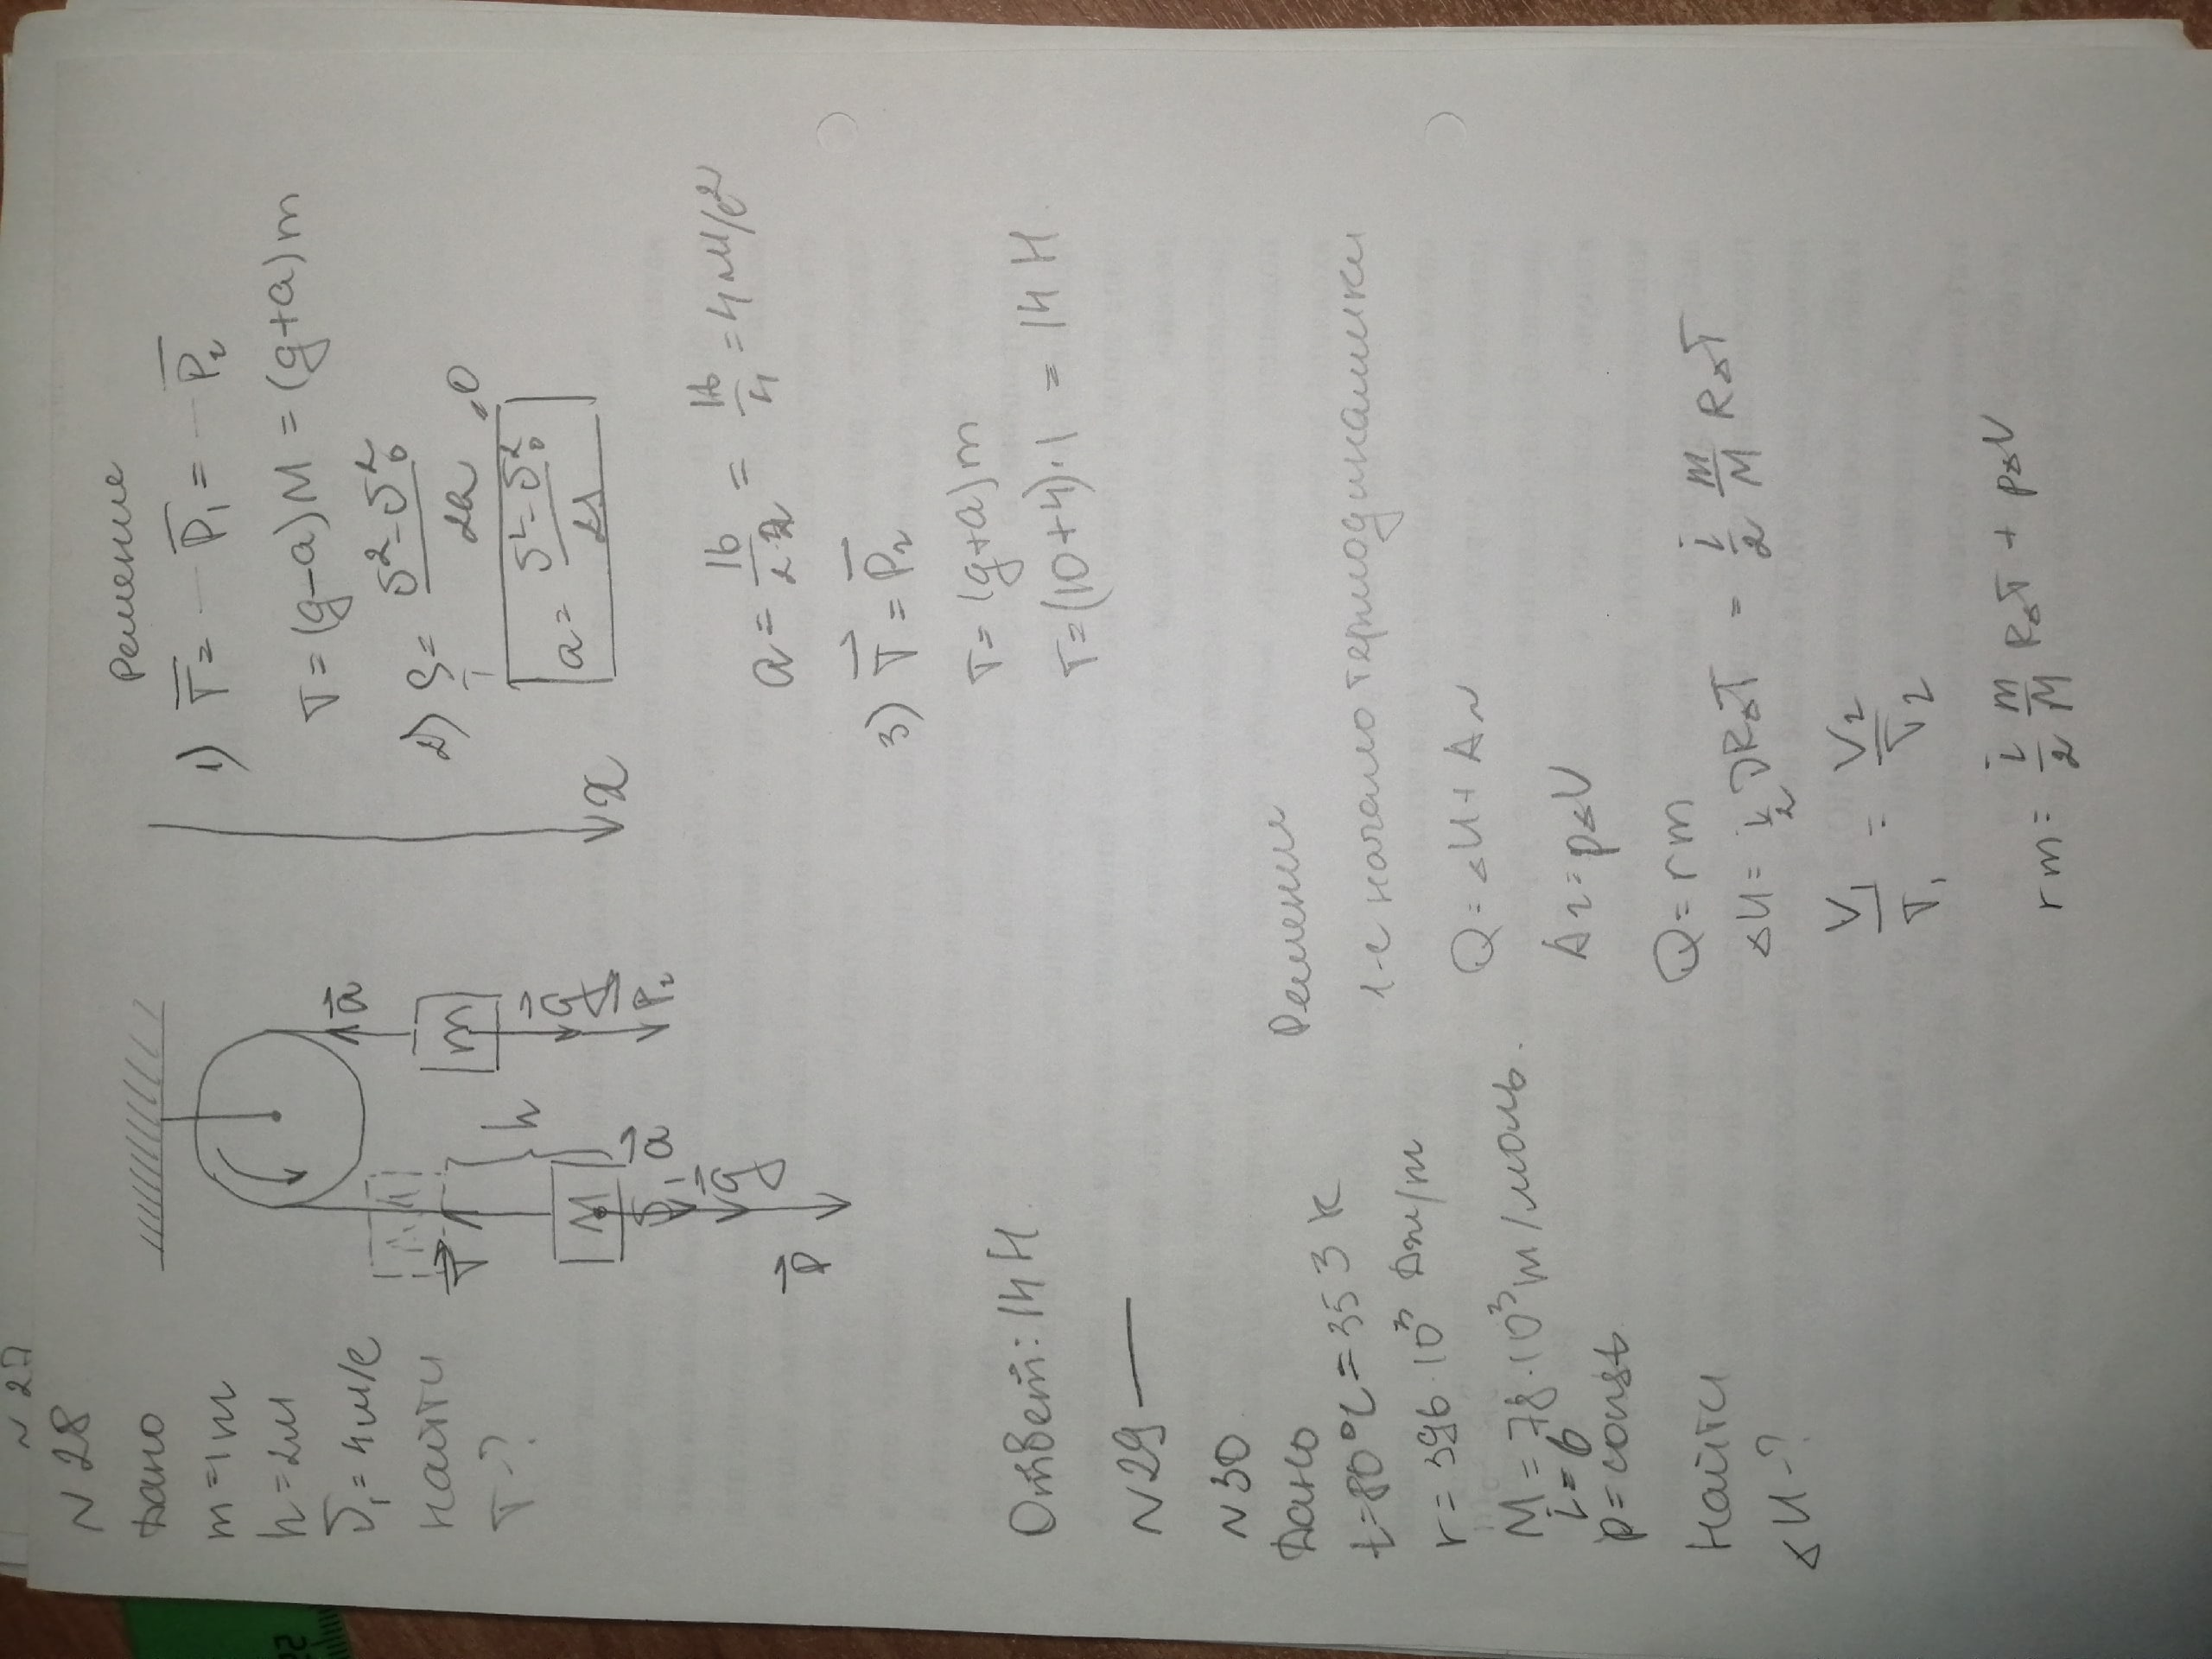 N 27
N 28
Дано
m = 1 т
h = 2м
V₁ = 4 м/с
Найти
T - ?
M
T⃗
h
M
a⃗
g⃗
P⃗
a⃗
m
g⃗
P⃗₂
x
Решение
1) T̅ = - P̅₁ = - P̅₂
T = (g-a)M = (g+a)m
2) S = (V² - V₀²)/2a
= 0
a = (V² - V₀²)/2S
a = 16/2·2 = 16/4 = 4 м/с²
3) T⃗ = P̅₂
T = (g+a)m
T = (10+4)·1 = 14 Н
Ответ: 14 Н
N 29 —
N 30
Дано
t = 80°C = 353 К
r = 396·10³ Дж/т
M = 78·10³ т/моль.
i = 6
p = const
Найти
ΔU - ?
Решение
1-е начало термодинамики
Q = ΔU + Aг
Aг = pΔV
Q = rm
ΔU = i/2 νRΔT = i/2 m/M RΔT
V₁/T₁ = V₂/T₂
rm = i/2 m/M RΔT + pΔV